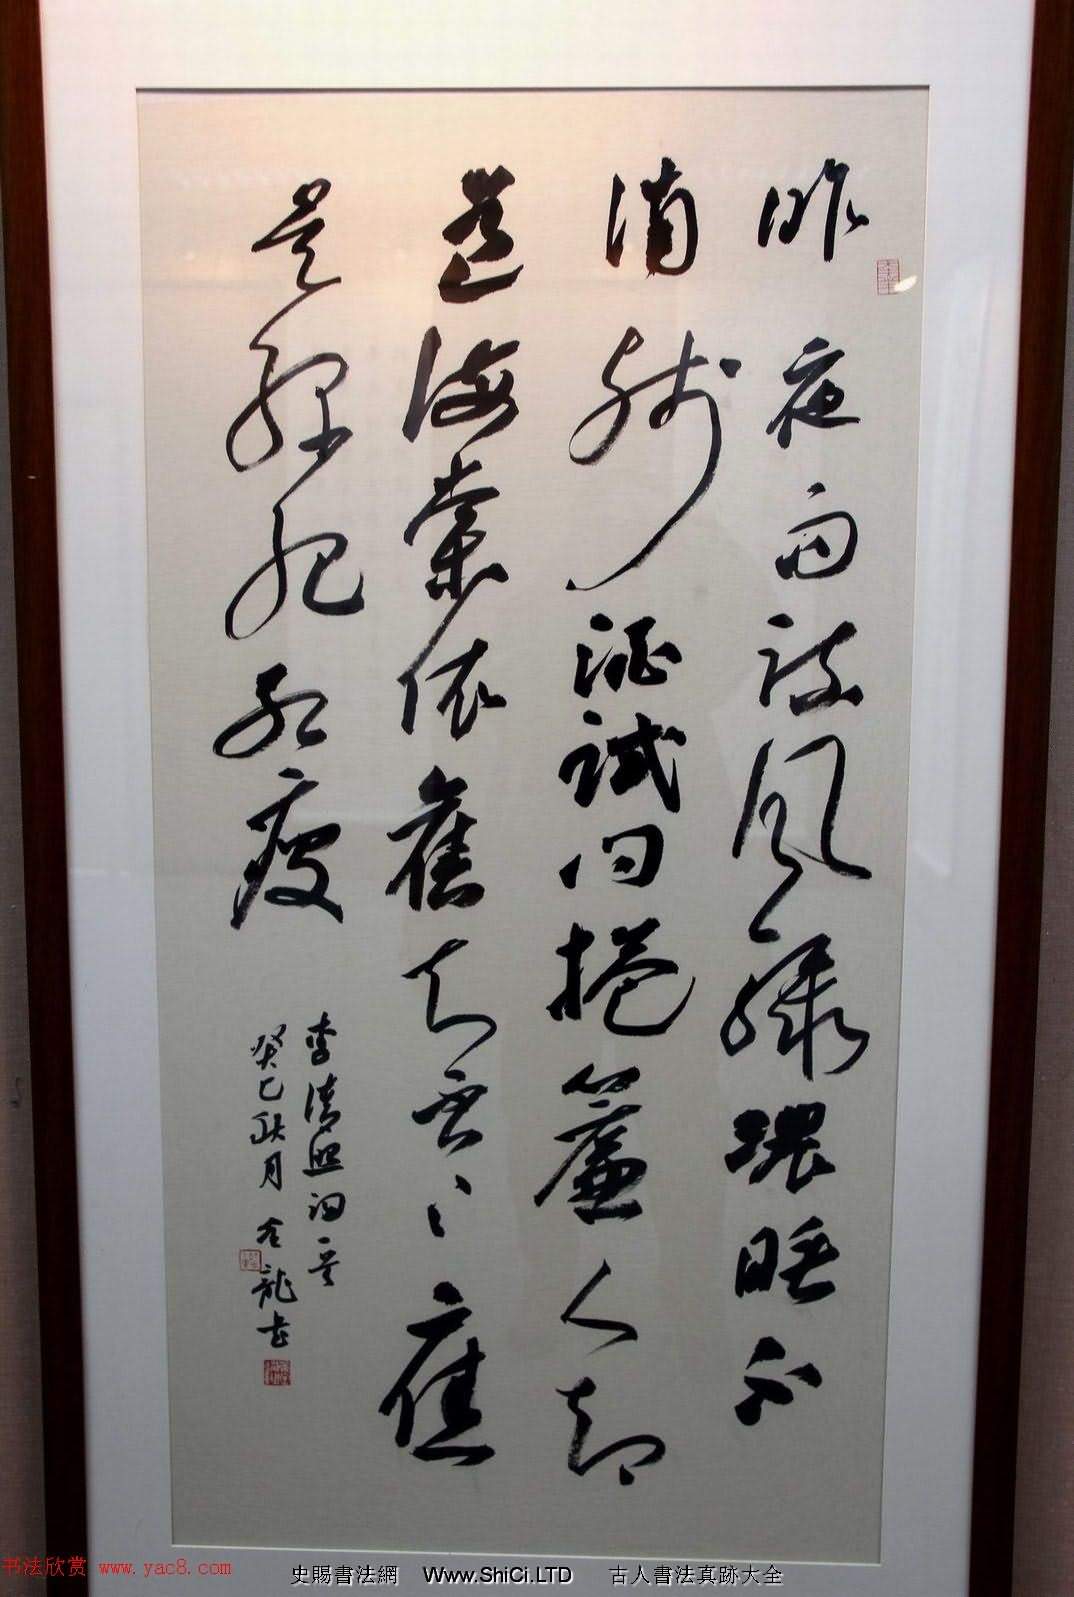 昨夜雨疏風驟濃睡不
消殘酒試問捲簾人卻
道海棠依舊知否〻〻應
是綠肥紅瘦
李清照詞一首
癸巳秋月 龍書
书法欣赏 www.yac8.com
史賜書法網 Www.ShiCi.LTD 古人書法真跡大全